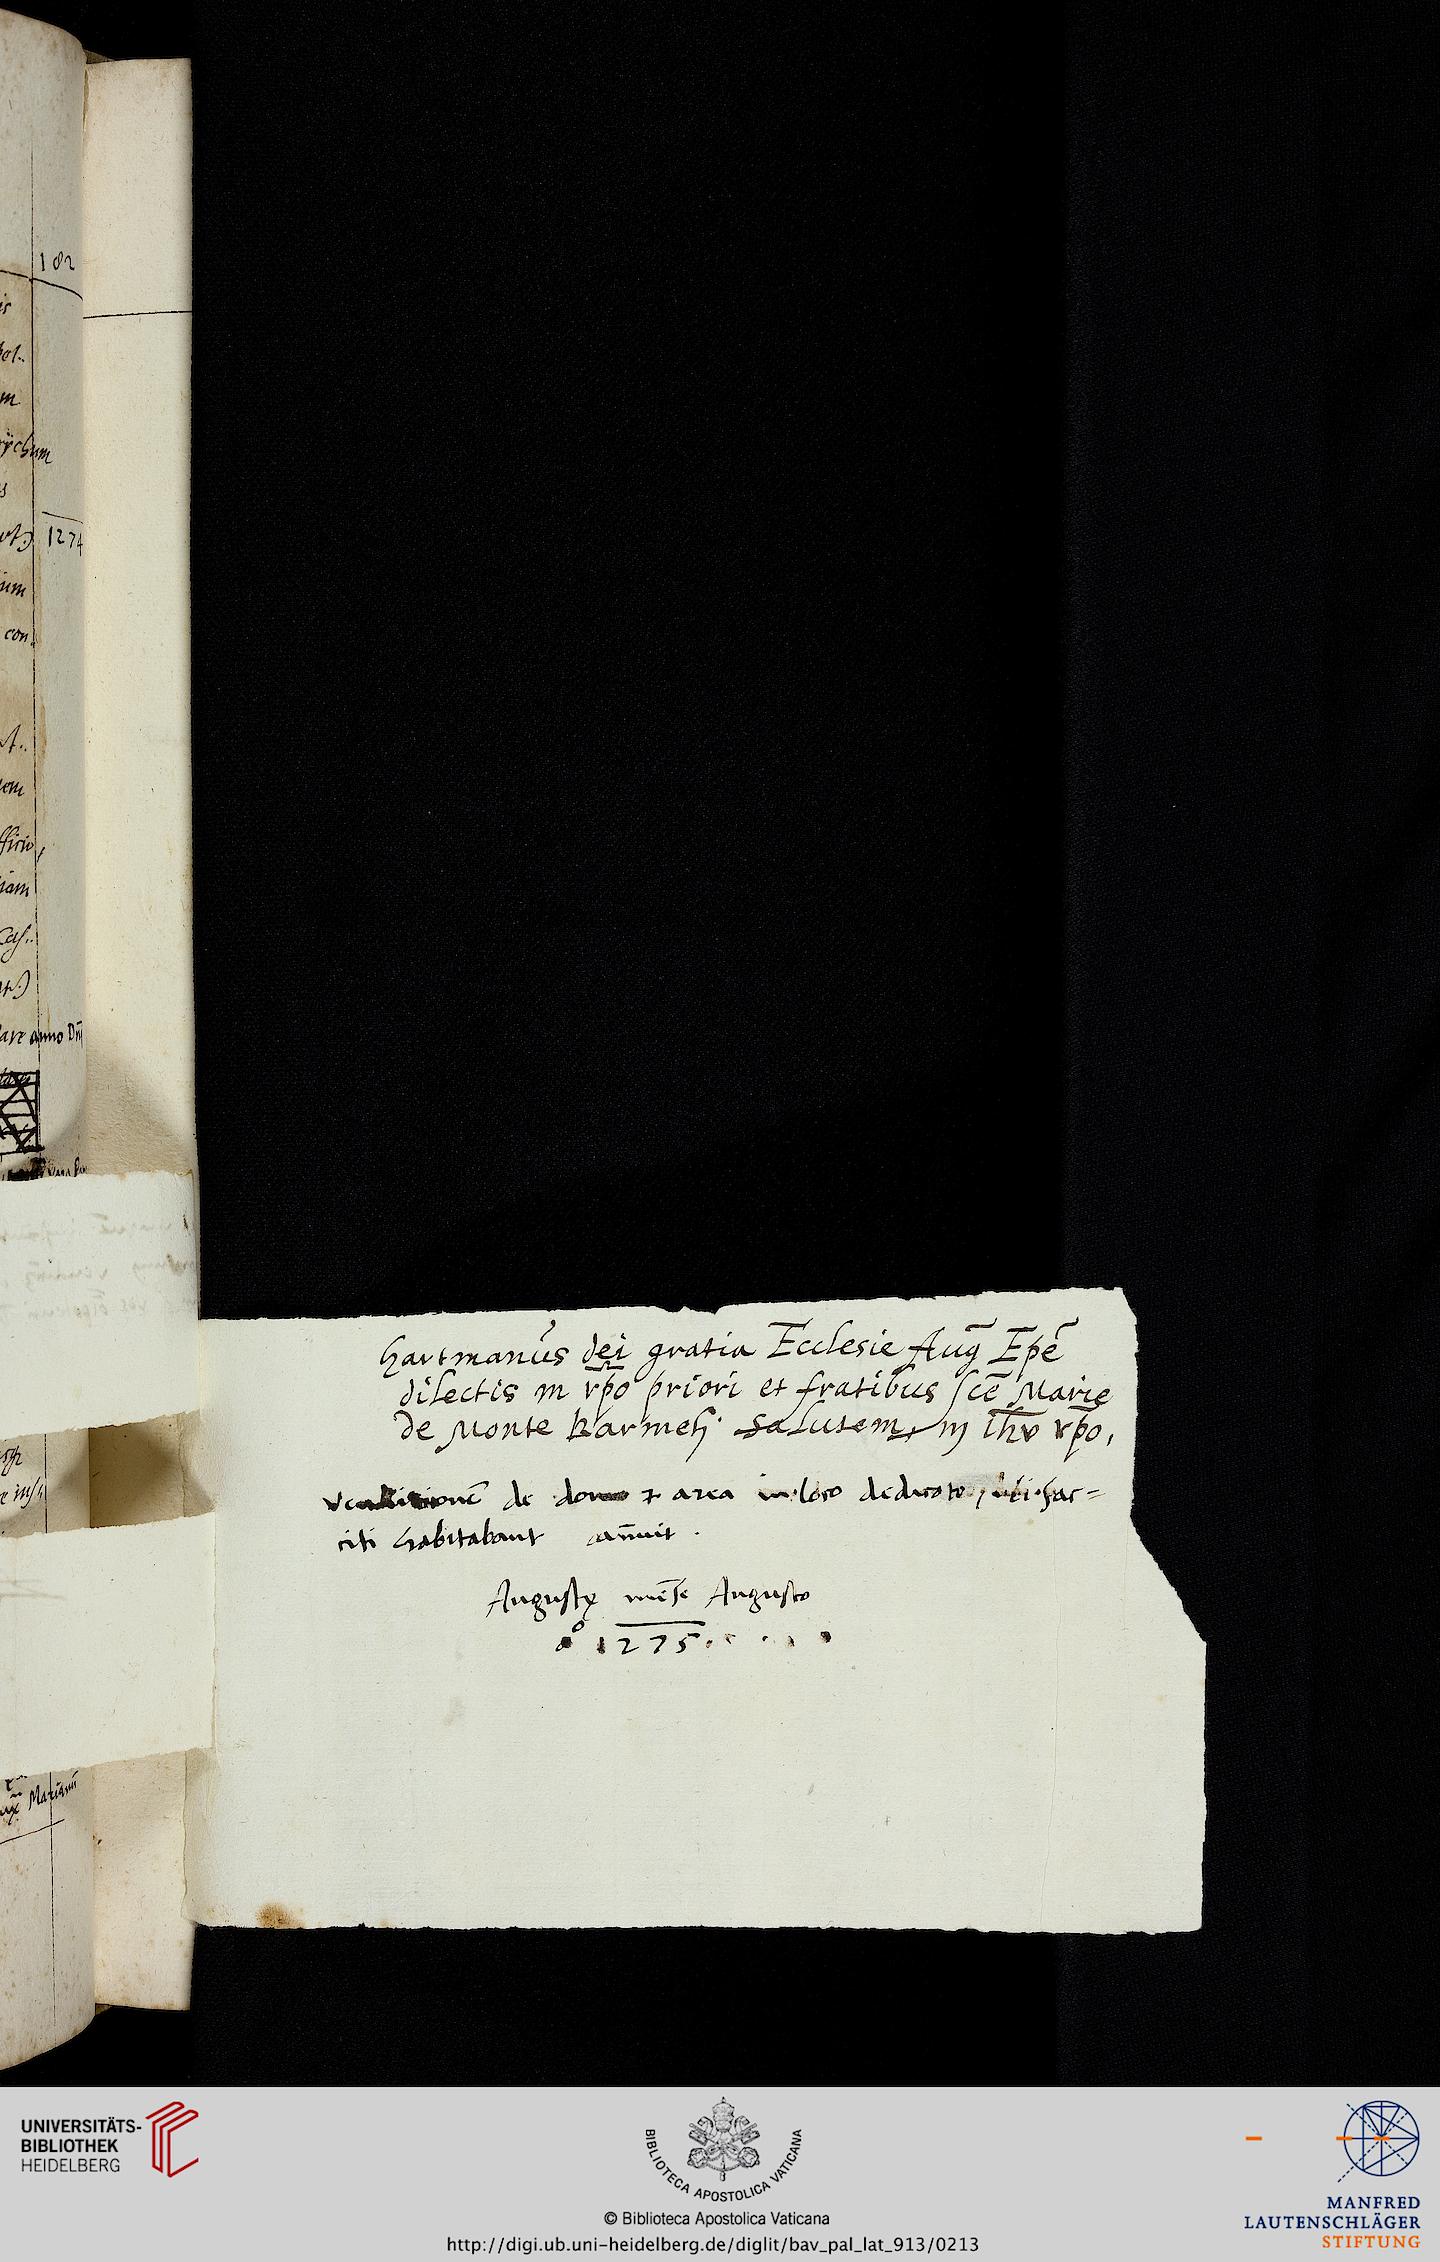 182
is
pol..
m
ychum
us
1274
ium
con..
at..
iam
are anno Dnj
Marianū
hartmanus dei gratia Ecclesie Aug̅ Ep̅e
dilectis in xp̅o priori et fratibus sce̅ Marie
de Monte Karmeli salutem, in ihv̅ xp̅o,
vendicione̅ de domo & area in loco dedicato, ubi sac=
citi habitabant an̅uit .
Augustę me̅se Augusto
ao 1275.
UNIVERSITÄTS-
BIBLIOTHEK
HEIDELBERG
BIBLIOTECA APOSTOLICA VATICANA
© Biblioteca Apostolica Vaticana
http://digi.ub.uni-heidelberg.de/diglit/bav_pal_lat_913/0213
MANFRED
LAUTENSCHLÄGER
STIFTUNG